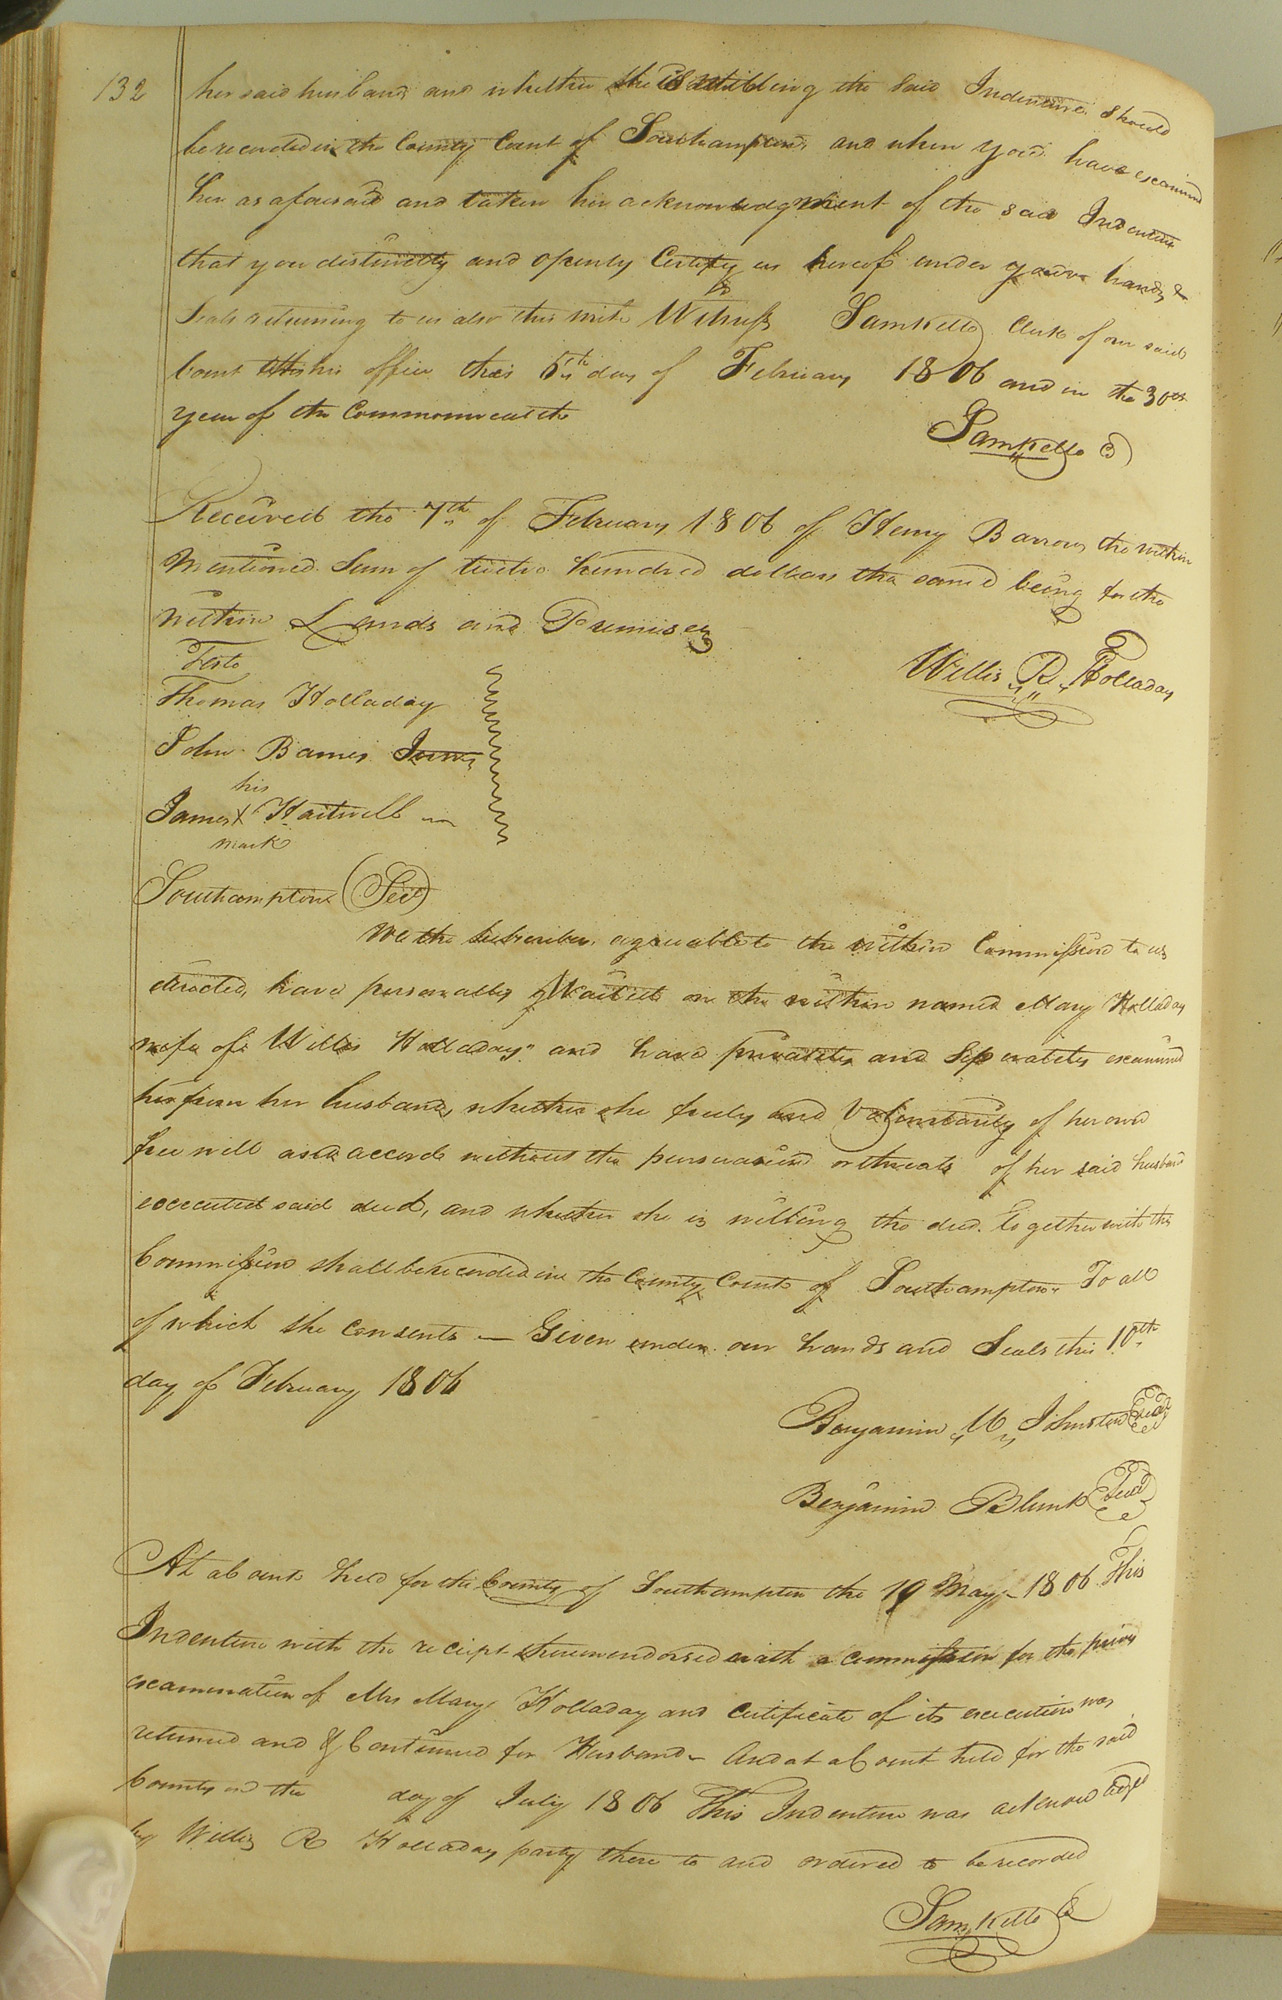 132
her said husband and whether she is willing the said Indenture should
be recorded in the County Court of Southampton, and when you have examined
her as aforesaid and taken her acknowledgment of the said Indenture
that you distinctly and openly Certify us hereof under your hands &
Seals returning to us also this writ Witness Saml Kello Clerk of our said
Court at his office this 5th day of February 1806 and in the 30th
year of the Commonwealth
Saml Kello C
Received the 7th of February 1806 of Henry Barrow the within
Mentioned Sum of twelve hundred dollars the same being for the
within Lands and Premises
Teste
Willis R Holladay
Thomas Holladay
John Barnes Junr
his
James X Hartwell
mark
Southampton (Sct)
We the Subscribers agreeable to the within Commission to us
directed, have personally Waited on the within named Mary Holladay
wife of Willis Holladay and have privately and Seperately examined
her from her husband, whether she freely and Voluntarily of her own
free will and accord without the persuasion or threats of her said husband
executed said deed, and whether she is willing the deed together with this
Commission shall be recorded in the County Court of Southampton To all
of which she consents — Given under our hands and Seals this 10th
day of February 1806
Benjamin W Johnston Seal
Benjamin Blunt Seal
At a Court held for the County of Southampton the 19 May 1806 This
Indenture with the receipt thereon endorsed with a commission for the privy
examination of Mrs Mary Holladay and Certificate of its execution was
returned and Continued for Husband — And at a Court held for the said
County on the day of July 1806 This Indenture was acknowledged
by Willis R Holladay party there to and ordered to be recorded
Saml Kello C